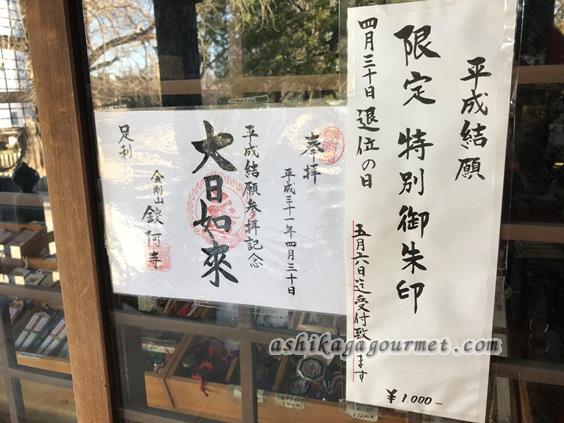 平成結願
限定 特別御朱印
四月三十日 退位の日
五月六日迄受付致します
¥1000-
奉拝
平成三十一年四月三十日
平成結願参拝記念
大日如來
足利
金剛山
鑁阿寺
ashikagagourmet.com